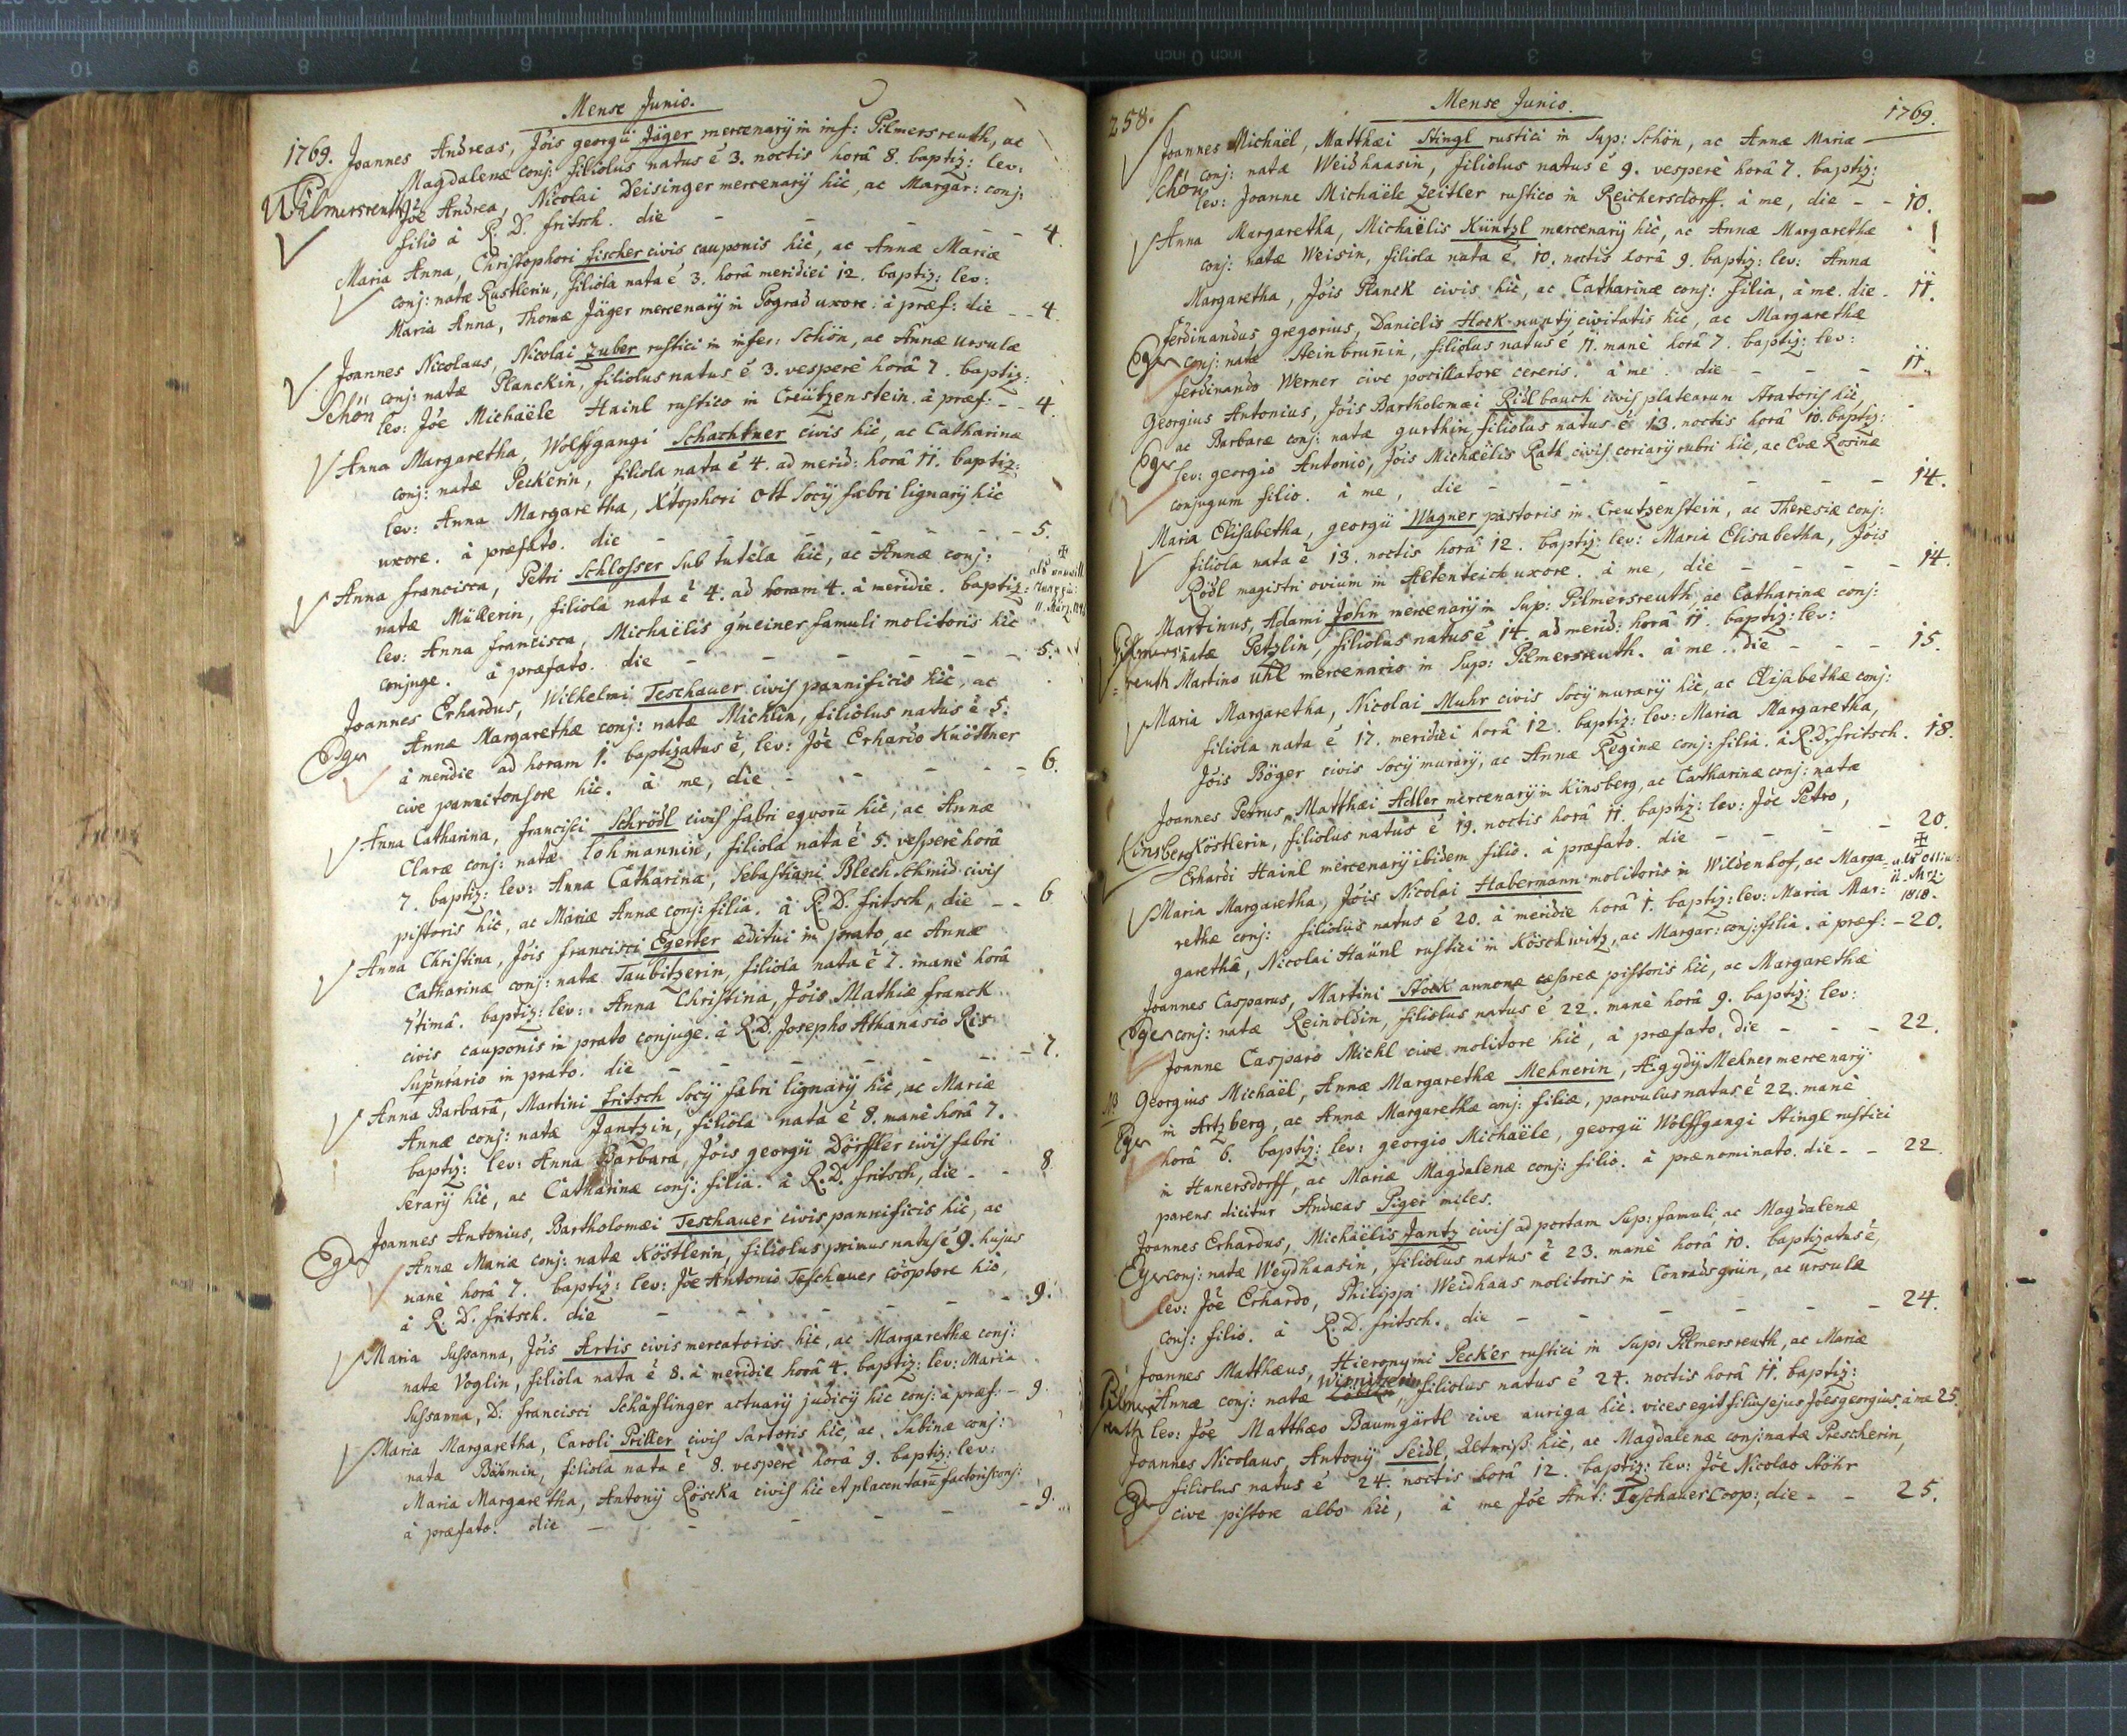 Mense Junio.
1769. Joannes Andreas, Jois georgii Jäger mercenarij in inf: Pilmersreuth, ac
Magdalenæ conj: filiolus natus ê 3. noctis horâ 8. baptiz: lev:
Pilmersreuth Jôe Andrea, Nicolai Deisinger mercenarij hic, ac Margar: conj:
filio à R. D. fritsch. die - - - - 4.
Maria Anna, Christophori fischer civis cauponis hic, ac Annæ Mariæ
conj: natæ Rustlerin, filiola nata ê 3. horâ meridiei 12. baptiz: lev:
Maria Anna, Thomæ Jäger mercenarij in Pograd uxore. à præf: die - - 4.
Joannes Nicolaus, Nicolai Zuber rustici in infer: Schön, ac Annæ Ursulæ
conj: natæ Planckin, filiolus natus ê 3. vesperè horâ 7. baptiz:
Schön lev: Jôe Michaële Hainl rustico in Creützenstein. à præf: - - 4.
Anna Margaretha, Wolffgangi Schachtner civis hic, ac Catharinæ
conj: natæ Peckerin, filiola nata ê 4. ad merid: horâ 11. baptiz:
lev: Anna Margaretha, Xtophori Ott socij fabri lignarij hic
uxore. à præfato. die - - - - - 5.
Anna francisca, Petri Schlosser sub tutela hic, ac Annæ conj:
natæ Müllerin, filiola nata ê 4. ad horam 4. à meridie. baptiz:
lev: Anna francisca, Michaëlis gmeiner famuli molitoris hic
conjuge. à præfato. die - - - - - 5.
Joannes Erhardus, Wilhelmi Teschauer civis pannificis hic, ac
Annæ Margarethæ conj: natæ Michlin, filiolus natus ê 5.
Egr à meridie ad horam 1. baptizatus ê, lev: Jôe Erhardo Knöttner
cive pannitonsore hic. à me, die - - - - 6.
Anna Catharina, francisci Schrödl civis fabri eqvorū hic, ac Annæ
Claræ conj: natæ Lohmannin, filiola nata ê 5. vesperè horâ
7. baptiz: lev: Anna Catharina, Sebastiani Blechschmid civis
pistoris hic, ac Mariæ Annæ conj: filia. à R. D. fritsch, die - - 6
Anna Christina, Jois francisci Egerter æditui in prato, ac Annæ
Catharinæ conj: natæ Taubitzerin, filiola nata ê 7. manè horâ
7timâ. baptiz: lev: Anna Christina, Jois Mathiæ franck
civis cauponis in prato conjuge. à R.D. Josepho Athanasio Ris
in prato. die - - - - - 7.
Anna Barbara, Martini fritsch socij fabri lignarij hic, ac Mariæ
Annæ conj: natæ Jantzin, filiola nata ê 8. manè horâ 7.
baptiz: lev: Anna Barbara, Jois georgii Dörffler civis fabri
serarij hic, ac Catharinæ conj: filia. à R. D. fritsch, die - - 8.
Joannes Antonius, Bartholomæi Teschauer civis pannificis hic, ac
Egr Annæ Mariæ conj: natæ Köstlerin, filiolus primus natus ê 9. hujus
manè horâ 7. baptiz: lev: Jôe Antonio Teschauer cooptore hic,
à R. D. fritsch. die - - - - - 9.
Maria Sussanna, Jois Artis civis mercatoris hic, ac Margarethæ conj:
natæ Voglin, filiola nata ê 8. à meridie horâ 4. baptiz: lev: Maria
Sussanna, D: francisci Schäflinger actuarij judicij hic conj: à præf: - 9.
Maria Margaretha, Caroli Priller civis sartoris hic, ac Sabinæ conj:
nata Böhmin, filiola nata ê 8. vesperè horâ 9. baptiz: lev:
Maria Margaretha, Antonij Röscka civis hic et placentarū factoris conj:
à præfato. die - - - - - 9.
258. Mense Junio. 1769.
Joannes Michaël, Matthæi Stingl rustici in Sup: Schön, ac Annæ Mariæ
conj: natæ Weidhaasin, filiolus natus ê 9. vesperè horâ 7. baptiz:
Schön lev: Joanne Michaële Zeitler rustico in Reichersdorff. à me, die - - 10.
Anna Margaretha, Michaëlis Küntzl mercenarij hic, ac Annæ Margarethæ
conj: natæ Weisin, filiola nata ê 10. noctis horâ 9. baptiz: lev: Anna
Margaretha, Jois Planck civis hic, ac Catharinæ conj: filia, à me. die - 11.
ferdinandus gregorius, Danielis Hock nuntij civitatis hic, ac Margarethæ
Egr conj: natæ Steinbrunin, filiolus natus ê 11. manè horâ 7. baptiz: lev:
ferdinando Werner cive pocillatore cereris. à me. die - - - 11.
Georgius Antonius, Jois Bartholomæi Ridlbauch civis platearum stratoris hic,
ac Barbaræ conj: natæ gurthin, filiolus natus ê 13. noctis horâ 10. baptiz:
Egr lev: georgio Antonio, Jois Michaëlis Rath civis coriarij rubri hic, ac Evæ Rosinæ
conjugum filio. à me, die - - - - - - 14.
Maria Elisabetha, georgii Wagner pastoris in Creutzenstein, ac Theresiæ conj:
filiola nata ê 13. noctis horâ 12. baptiz: lev: Maria Elisabetha, Jois
Rödl magistri ovium in Altenteich uxore. à me, die - - - - 14.
Martinus, Adami John mercenarij in Sup: Pilmersreuth, ac Catharinæ conj:
Pilmers- natæ Petzlin, filiolus natus ê 14. ad merid: horâ 11. baptiz: lev:
reuth Martino Uhl mercenario in Sup: Pilmersreuth. à me. die - - - 15.
Maria Margaretha, Nicolai Muhr civis socij murarij hic, ac Elisabethæ conj:
filiola nata ê 17. meridiei horâ 12. baptiz: lev: Maria Margaretha,
Jois Böger civis socij murarij, ac Annæ Reginæ conj: filia. à R.D. fritsch. 18.
Joannes Petrus, Matthæi Adler mercenarij in Kinsberg, ac Catharinæ conj: natæ
Kinsberg Köstlerin, filiolus natus ê 19. noctis horâ 11. baptiz: lev: Jôe Petro,
Erhardi Hainl mercenarij ibidem filio. à præfato. die - - - - 20.
Maria Margaretha, Jois Nicolai Habermann molitoris in Wildenhof, ac Marga-
rethæ conj: filiolus natus ê 20. à meridie horâ 1. baptiz: lev: Maria Mar: 1818.
garethâ, Nicolai Haünl rustici in Köschwitz, ac Margar: conj: filia. à præf: - 20.
Joannes Casparus, Martini Stöck annonæ cæsareæ pistoris hic, ac Margarethæ
Egr conj: natæ Reinoldin, filiolus natus ê 22. manè horâ 9. baptiz: lev:
Joanne Casparo Michl cive molitore hic, à præfato, die - - - 22.
NB Georgius Michaël, Annæ Margarethæ Mehnerin, Ægydij Mehner mercenarij
in Artzberg, ac Annæ Margarethæ conj: filiæ, parvulus natus ê 22. manè
Egr horâ 6. baptiz: lev: georgio Michaële, georgii Wolffgangi Stingl rustici
in Hanersdorff, ac Mariæ Magdalenæ conj: filio. à prænominato. die - - 22.
parens dicitur Andreas Piger miles.
Joannes Erhardus, Michaëlis Jantz civis ad portam Sup: famuli, ac Magdalenæ
Egr conj: natæ Weydhaasin, filiolus natus ê 23. manè horâ 10. baptizatus ê,
lev: Jôe Erhardo, Philippi Weidhaas molitoris in Conradsgrün, ac Ursulæ
conj: filio. à R. D. fritsch. die - - - - - 24.
Joannes Matthæus, Hieronymi Pecker rustici in Sup: Pilmersreuth, ac Mariæ
Pilmers Annæ conj: natæ filiolus natus ê 24. noctis horâ 11. baptiz:
reuth lev: Jôe Matthæo Baumgärtl cive auriga hic. vices egit filius ejus Jôes georgius. à me 25.
Joannes Nicolaus, Antonij Seidl, hic, ac Magdalenæ conj: natæ Prescherin,
filiolus natus ê 24. noctis horâ 12. baptiz: lev: Jôe Nicolao Stöhr
Egr cive pistore albo hic, à me Jôe Ant: Teschauer Coop:, die - - 25.